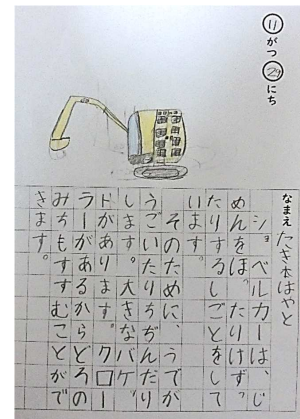 11がつ29にち
なまえ たき本はやと
ショベルカーは、じ
めんをほったりけずっ
たりするしごとをして
います。
そのために、うでが
うごいたりちぢんだり
します。大きなバケッ
トがあります。クロー
ラーがあるからどろの
みちもすすむことがで
きます。